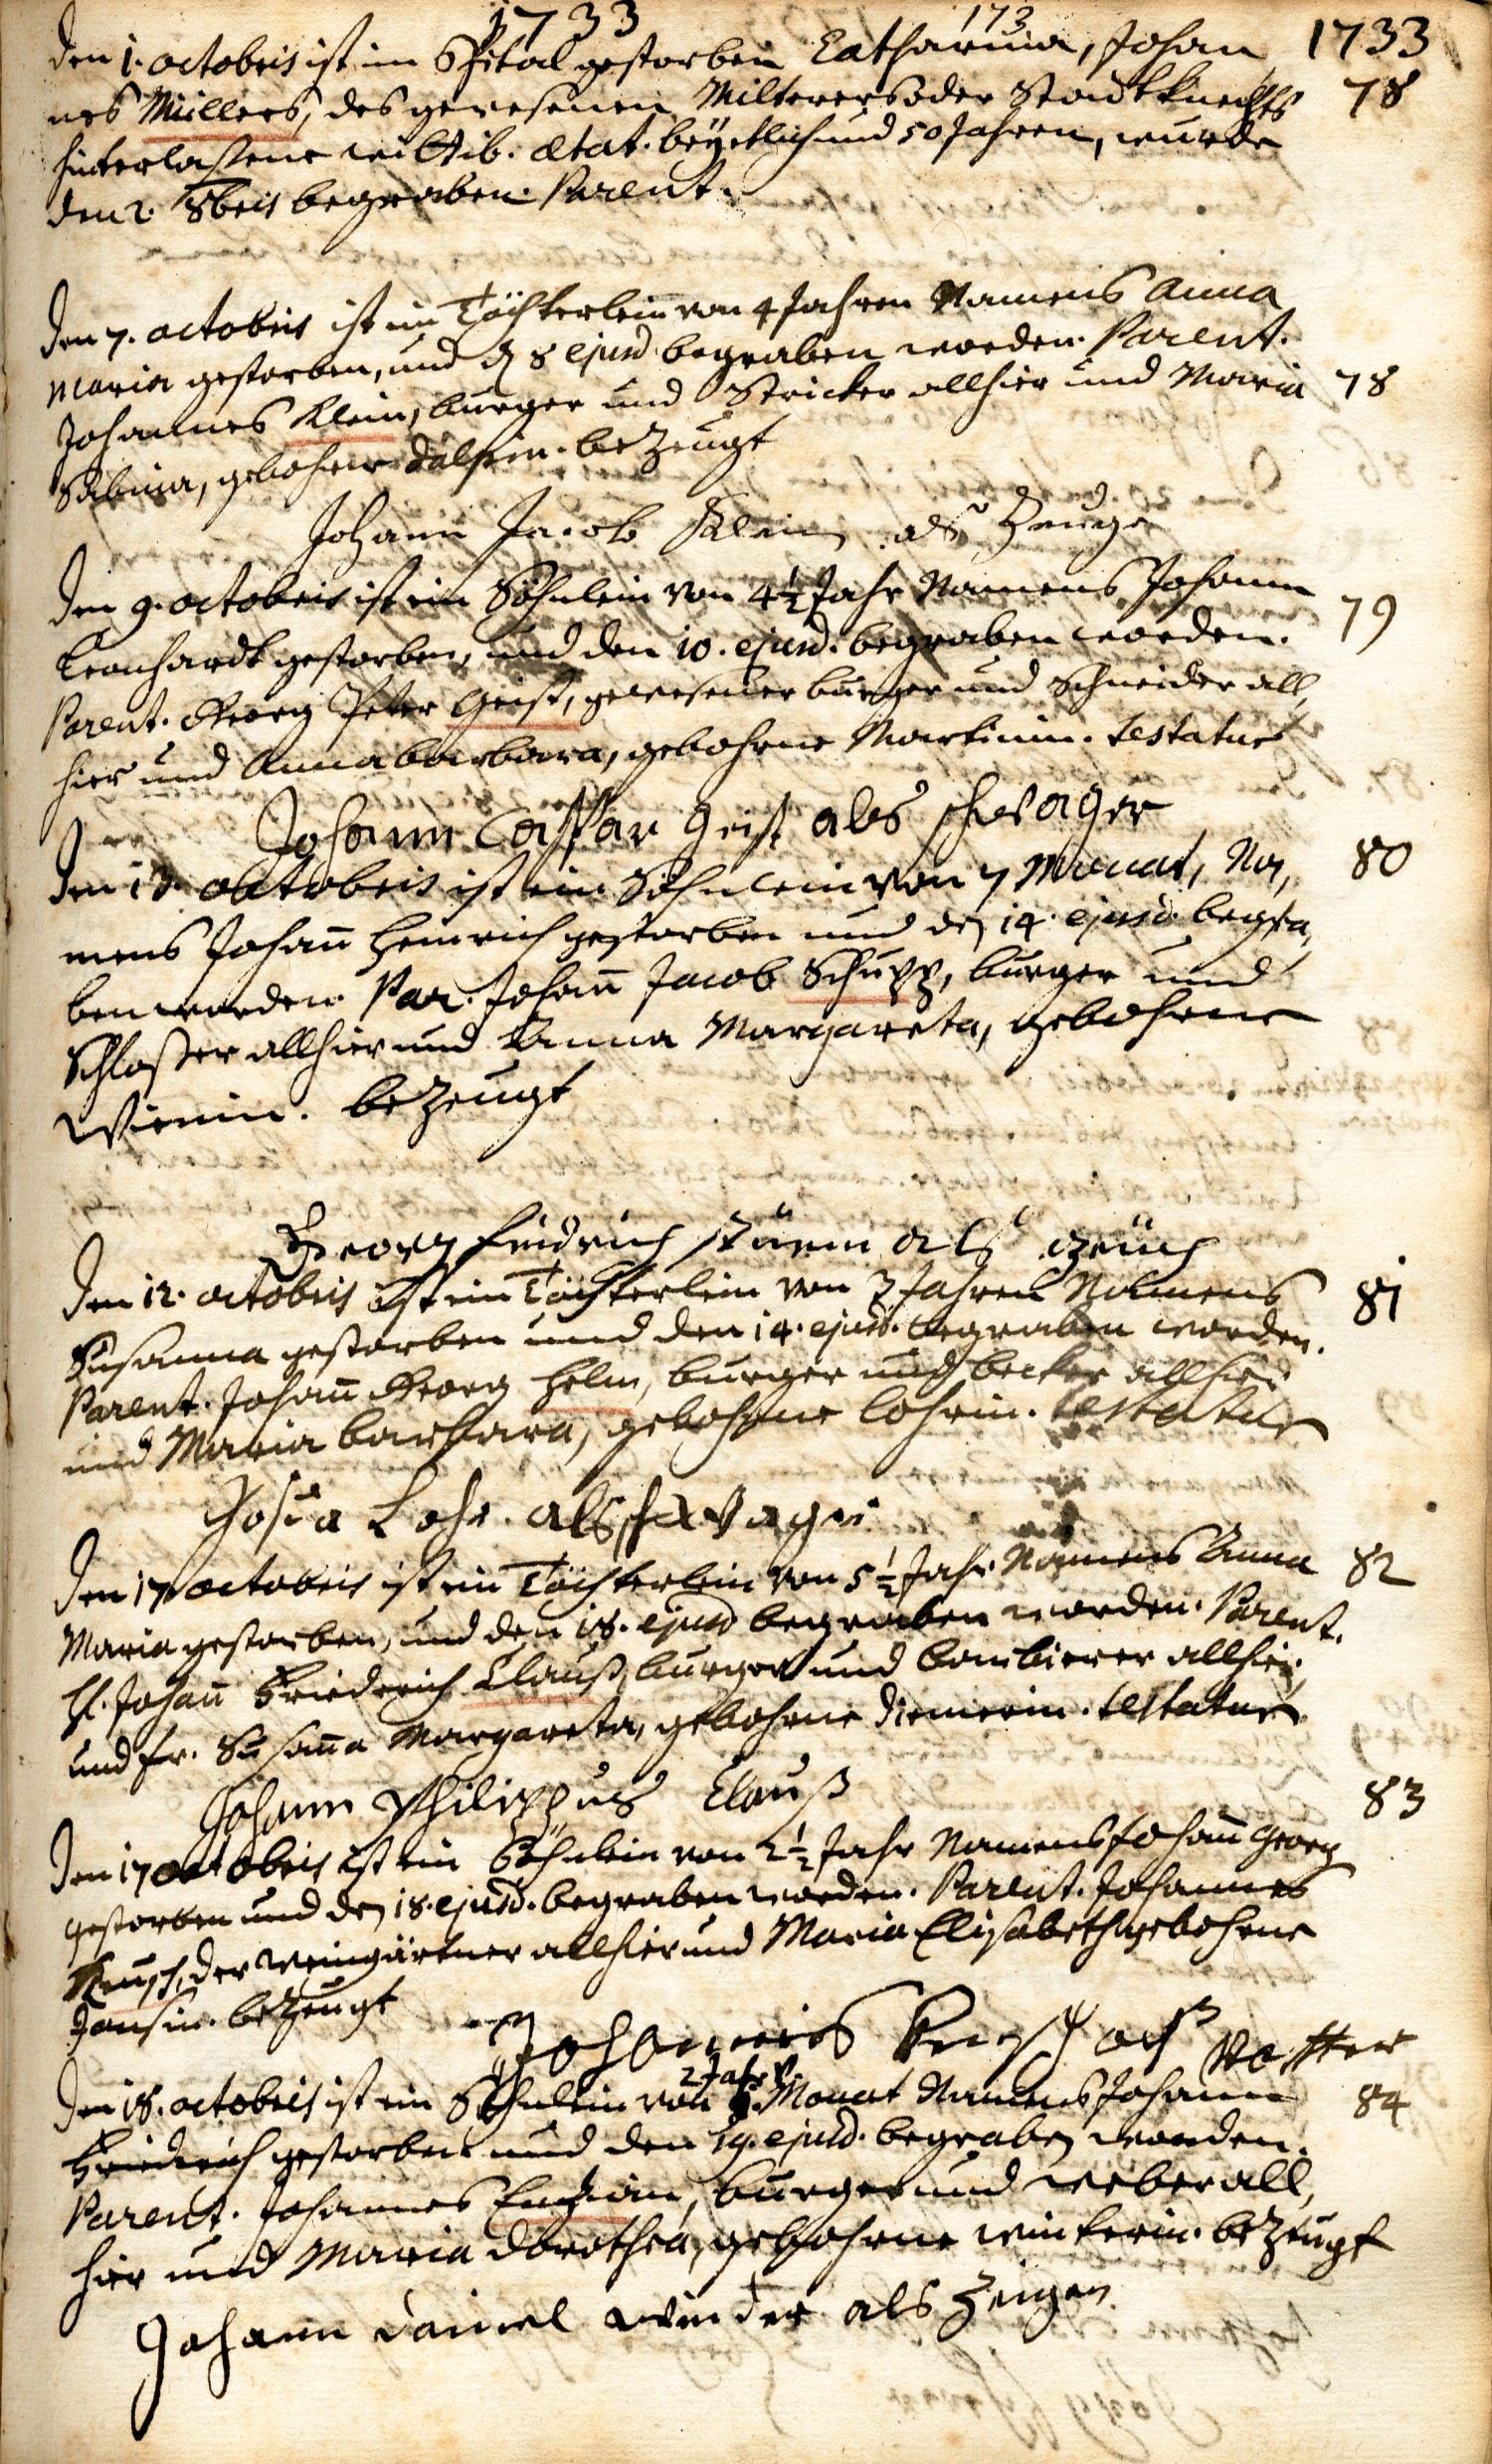 1733
173
1733
Den 1. octobris ist im Spital gestorben Catharina, Johan
78
nes Müllers, des gewesenen Milterers oder Stadtknechts
hinterlaßene Wittib. Ætat. beÿ etlich und 50 Jahren, wurde
den 2. 8bris begraben. Parent.
Den 7. octobris ist ein Töchterlein von 4 Jahren Namens Anna
Maria gestorben, und d. 8 ejusd begraben worden. Parent.
Johannes Klein, burger und Stricker allhier und Maria
78
Sabina, gebohrne bezeugt
Johann Jacob Klein als Zeuge
Den 9. octobris ist ein Söhnlein von 4½ Jahr Namens Johann
79
Leonhardt gestorben, und den 10. ejusd. begraben worden.
Parent. Georg Peter Geist, gewesener burger und Schneider all,
hier und Anna barbara, gebohrne Martinin. testatur
Johann Caspar Geist als schwager
Den 13. octobris ist ein Söhnlein von 7 Monat, Na,
80
mens Johann Heinrich gestorben und den 14. ejusd. begra,
ben worden. Par. Johann Jacob Schupp, burger und
Schloßer allhier und Anna Margareta, gebohrne
bezeugt
Georg fridrich als zeuch
Den 12. octobris ist ein Töchterlein von 3 Jahren Namens
81
Susanna gestorben und den 14. ejusd. begraben worden.
Parent. Johann Georg Helm, burger und becker allhier
und Maria barbara, gebohrne Lohrin. testatur
Josua Lohr. als schwager
Den 17 octobris ist ein Töchterlein von 5½ Jahr Namens Anna
82
Maria gestorben, und den 18. ejusd begraben worden. Parent.
H. Johann Friederich Clauß, burger und barbierer allhier,
und fr. Susanna Margareta, gebohrne Diemerin. testatur
Johann Philippus Clauß
83
Den 17 octobris ist ein Söhnlein von 2½ Jahr Namens Johann Georg
gestorben und den 18. ejusd. begraben worden. Parent. Johannes
der weingärtner allhier und Maria Elisabeth gebohrne
bezeugt
Johannes als Vatter
2 Jahr
Den 18. octobris ist ein Söhnlein von Monat Namens Johann
84
Friedrich gestorben und den 19. ejusd. begraben worden.
Parent. Johannes burger und weber all,
hier und Maria Dorothea, gebohrne winterin. bezeugt
Johann Daniel winder als Zeugen